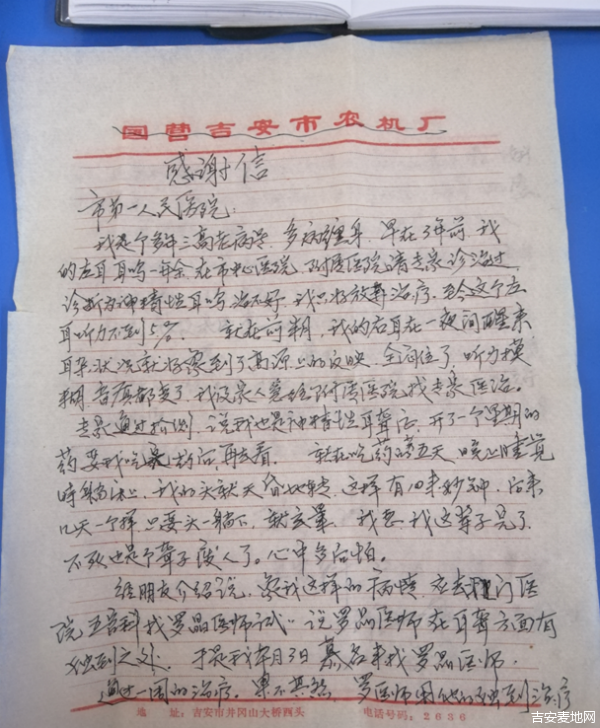 国营吉安市农机厂
感谢信
市第一人民医院:
我是个多年三高老病号,多病缠身,早在3年前我
的左耳耳鸣一年余在市中心医院、附属医院请专家诊治过,
诊断为神精性耳鸣治不好,我只好放弃治疗,至今这个左
耳听力不到5%。 就在前期,我的右耳在一夜间醒来
耳朵状况就好象到了高源上的反映,全闭住了,听力模
糊,音质都变了,我及家人急往附属医院找专家医治。
专家通过检测,说我也是神精性耳聋症,开了一个星期的
药要我吃完后再去看。 就在吃药第五天晚上睡觉
时躺床上,我的头就天昏地转,这样有10来秒钟,后来
几天一个样,只要头一躺下,就玄晕。我想我这辈子完了
不死也是个聋子废人了。心中多后怕。
经朋友介绍说,象我这样的病情,应去门医
院五官科找罗晶医师试试"说罗晶医师在耳聋方面有
独到之处,于是我本月3日慕名来找罗晶医师
通过一周的治疗,果不其然,罗医师用他的独到治疗
地 址:吉安市井冈山大桥西头 电话号码:2636
吉安麦地网